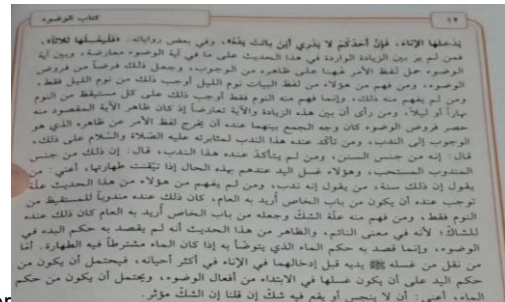 ١٢ كتاب الوضوء
يدخلها الإناء، فإن أحدكم لا يدري أين باتت يده». وفي بعض رواياته: «فليغسلها ثلاثاً».
فمن لم ير بين الزيادة الواردة في هذا الحديث على ما في آية الوضوء معارضة، وبين آية
الوضوء حمل لفظ الأمر ههنا على ظاهره من الوجوب، وجعل ذلك فرضاً من فروض
الوضوء، ومن فهم من هؤلاء من لفظ البيات نوم الليل أوجب ذلك من نوم الليل فقط،
ومن لم يفهم منه ذلك، وإنما فهم منه النوم فقط أوجب ذلك على كل مستيقظ من النوم
نهاراً أو ليلاً، ومن رأى أن بين هذه الزيادة والآية تعارضاً إذ كان ظاهر الآية المقصود منه
حصر فروض الوضوء كان وجه الجمع بينهما عنده أن يخرج لفظ الأمر عن ظاهره الذي هو
الوجوب إلى الندب، ومن تأكد عنده هذا الندب لمثابرته عليه الصلاة والسلام على ذلك،
قال: إنه من جنس السنن، ومن لم يتأكد عنده هذا الندب، قال: إن ذلك من جنس
المندوب المستحب، وهؤلاء غسل اليد عندهم بهذه الحال إذا تيقنت طهارتها، أعني: من
يقول إن ذلك سنة، من يقول إنه ندب، ومن لم يفهم من هؤلاء من هذا الحديث علة
توجب عنده أن يكون من باب الخاص أريد به العام، كان ذلك عنده مندوباً للمستيقظ من
النوم فقط، ومن فهم منه علة الشك وجعله من باب الخاص أريد به العام كان ذلك عنده
للشاك؛ لأنه في معنى النائم، والظاهر من هذا الحديث أنه لم يقصد به حكم اليد في
الوضوء، وإنما قصد به حكم الماء الذي يتوضأ به إذا كان الماء مشترطاً فيه الطهارة. أما
من نقل من غسله ﷺ يديه قبل إدخالهما في الإناء في أكثر أحيانه، فيحتمل أن يكون من
حكم اليد على أن يكون غسلها في الابتداء من أفعال الوضوء، ويحتمل أن يكون من حكم
الماء، أعني: أن لا ينجس أو يقع فيه شك إن قلنا إن الشك مؤثر.